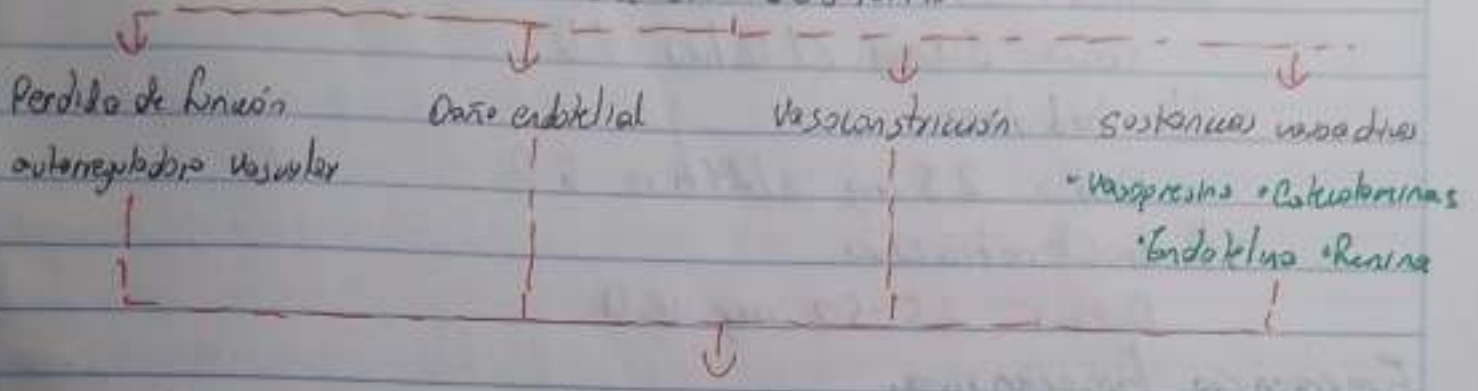 Perdida de función
autorreguladora vascular
Daño endotelial
Vasoconstricción
Sustancias vasoactivas
• Vasopresina • Catecolaminas
• Endotelina • Renina